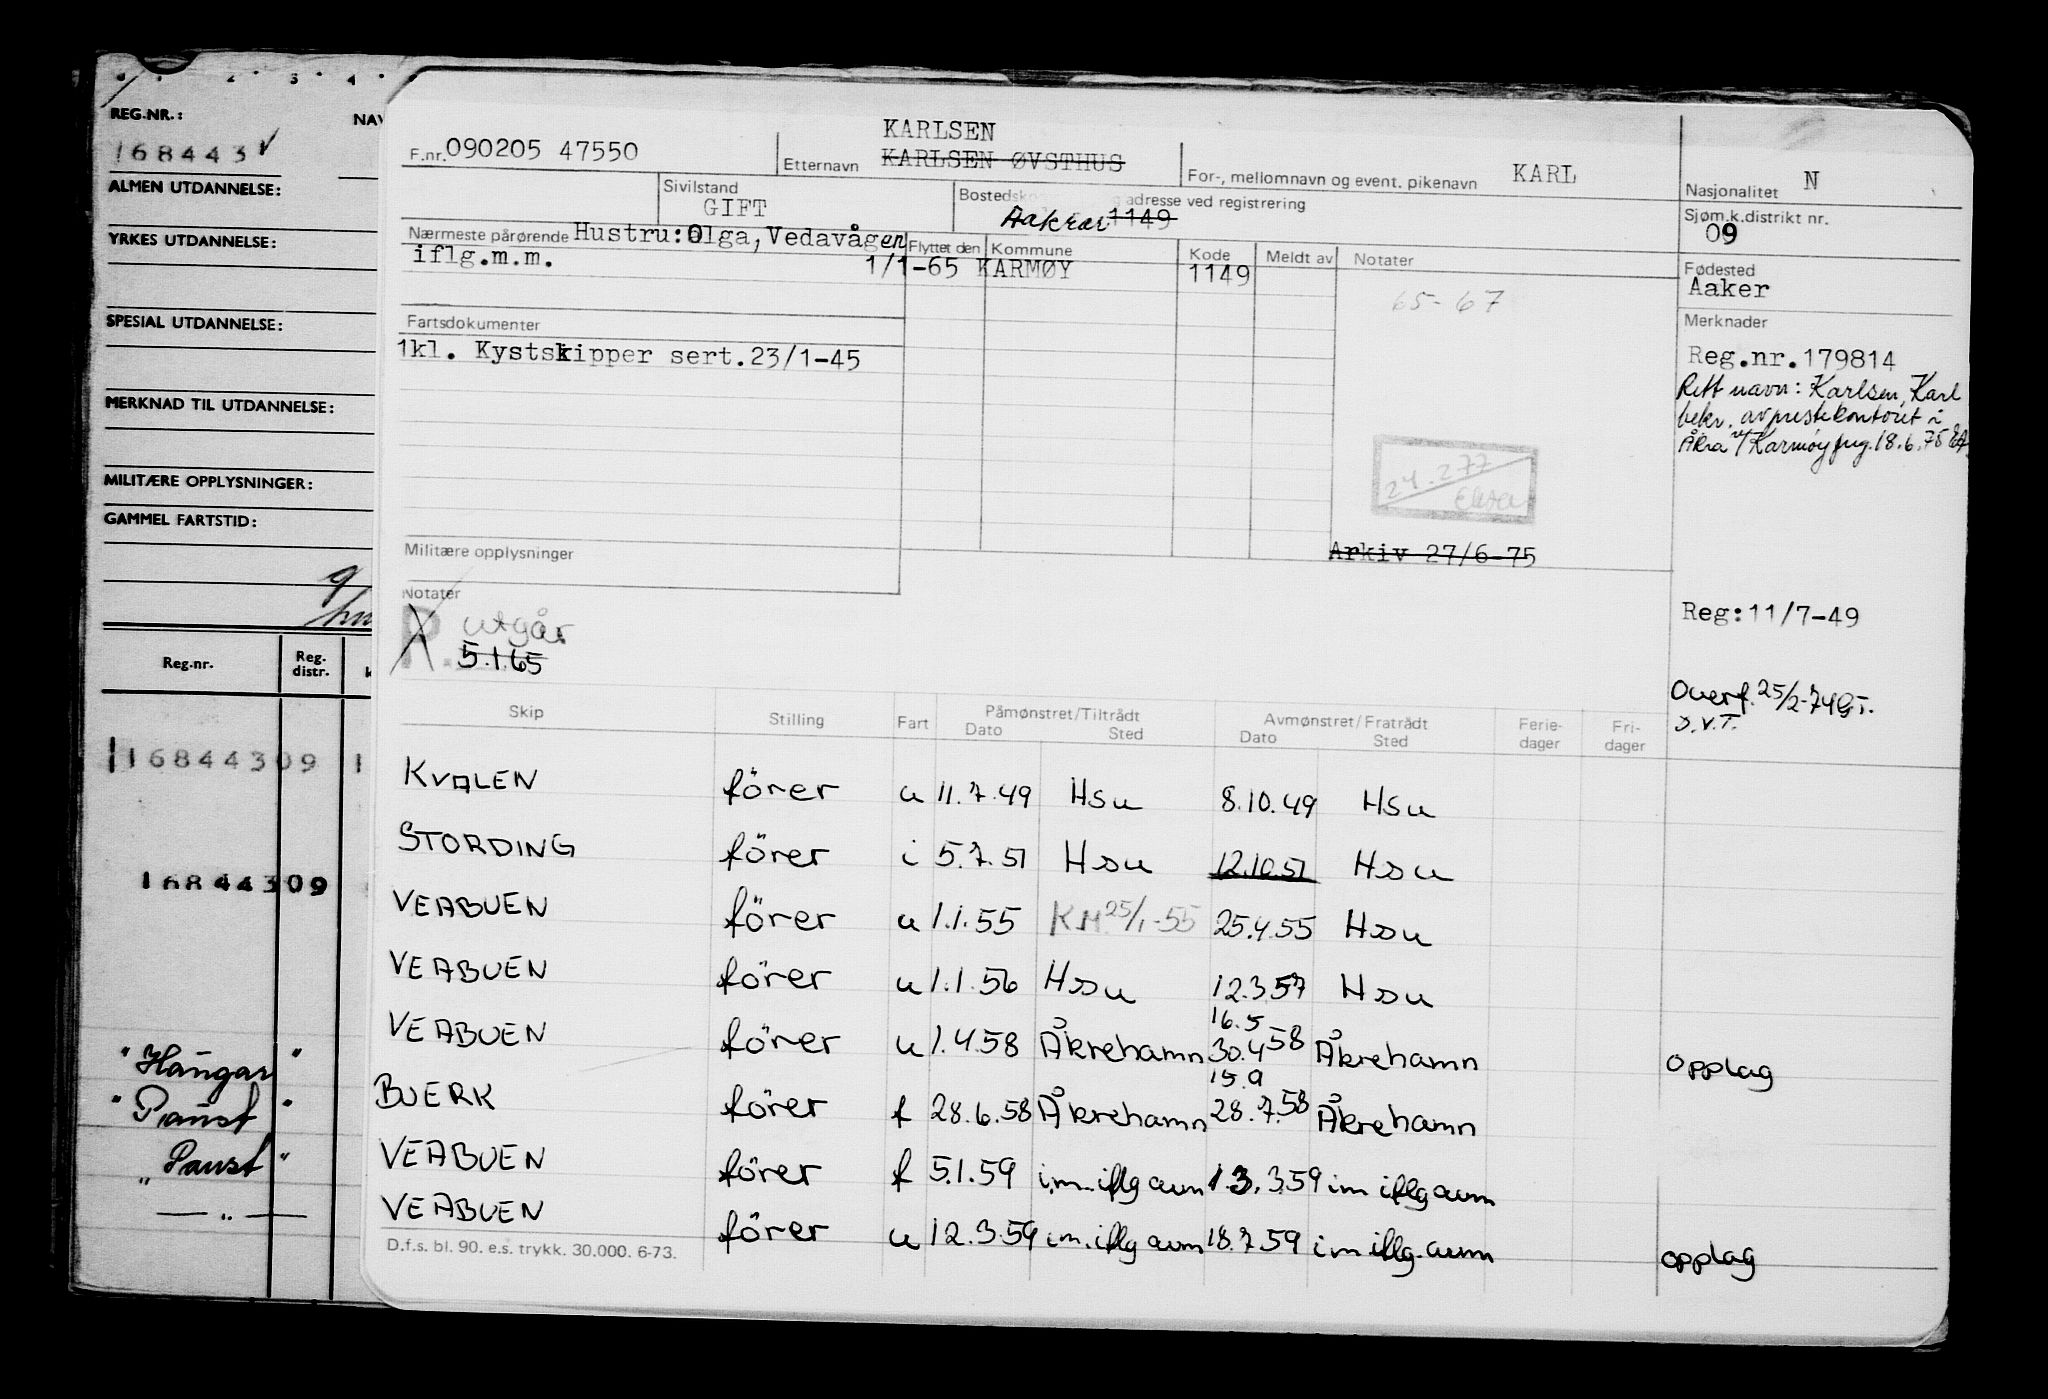 REG.NR.:
NAV
168443 ✓
ALMEN UTDANNELSE:
YRKES UTDANNELSE:
SPESIAL UTDANNELSE:
MERKNAD TIL UTDANNELSE:
MILITÆRE OPPLYSNINGER:
GAMMEL FARTSTID:
Reg.nr.
Reg. distr.
16844309
16844309
"Haugar"
"Paust"
"Paust"
— " —
F.nr. 090205 47550
KARLSEN
Etternavn KARLSEN ØVSTHUS
For-, mellomnavn og event. pikenavn KARL
Nasjonalitet N
Sivilstand
GIFT
adresse ved registrering
Aakrar 1149
Sjøm.k.distrikt nr.
09
Nærmeste pårørende Hustru: Olga, Vedavågen
iflg.m.m.
Flyttet den Kommune Kode Meldt av Notater
1/1-65 KARMØY 1149
65-67
Fødested
Aaker
Fartsdokumenter
1kl. Kystskipper sert.23/1-45
Merknader
Reg.nr.179814
Rett navn: Karlsen, Karl
bekr. av prestekontoret i
Åkra v/Karmøy frg. 18.6.75
24.2 77
Arkiv 27/6-75
Militære opplysninger
Notater
R. utgår
5.1.65
Reg:11/7-49
Overf. 25/2-74 G.T.
S.V.T.
Skip Stilling Fart Påmønstret/Tiltrådt Avmønstret/Fratrådt Ferie- Fri-
Dato Sted Dato Sted dager dager
KVALEN förer u 11.7.49 Hsu 8.10.49 Hsu
STORDING förer i 5.7.51 Hsu 12.10.51 Hsu
VEABUEN förer u 1.1.55 KM 25/1-55 25.4.55 Hsu
VEABUEN förer u 1.1.56 Hsu 12.3.57 Hsu
16.5
VEABUEN förer u 1.4.58 Åkrehamn 30.4 58 Åkrehamn opplag
15.9
BJERK förer f 28.6.58 Åkrehamn 28.7.58 Åkrehamn
VEABUEN förer f 5.1.59 i.m. iflg avm 1.3.3.59 im iflg avm
VEABUEN förer u 12.3.59 i.m. iflg avm 18.7.59 im iflg. avm opplag
D.f.s. bl. 90. e.s. trykk. 30.000. 6-73.